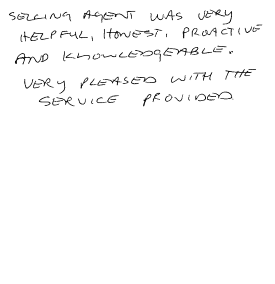 SELLING AGENT WAS VERY
HELPFUL, HONEST, PROACTIVE
AND KNOWLEDGEABLE.
VERY PLEASED WITH THE
SERVICE PROVIDED